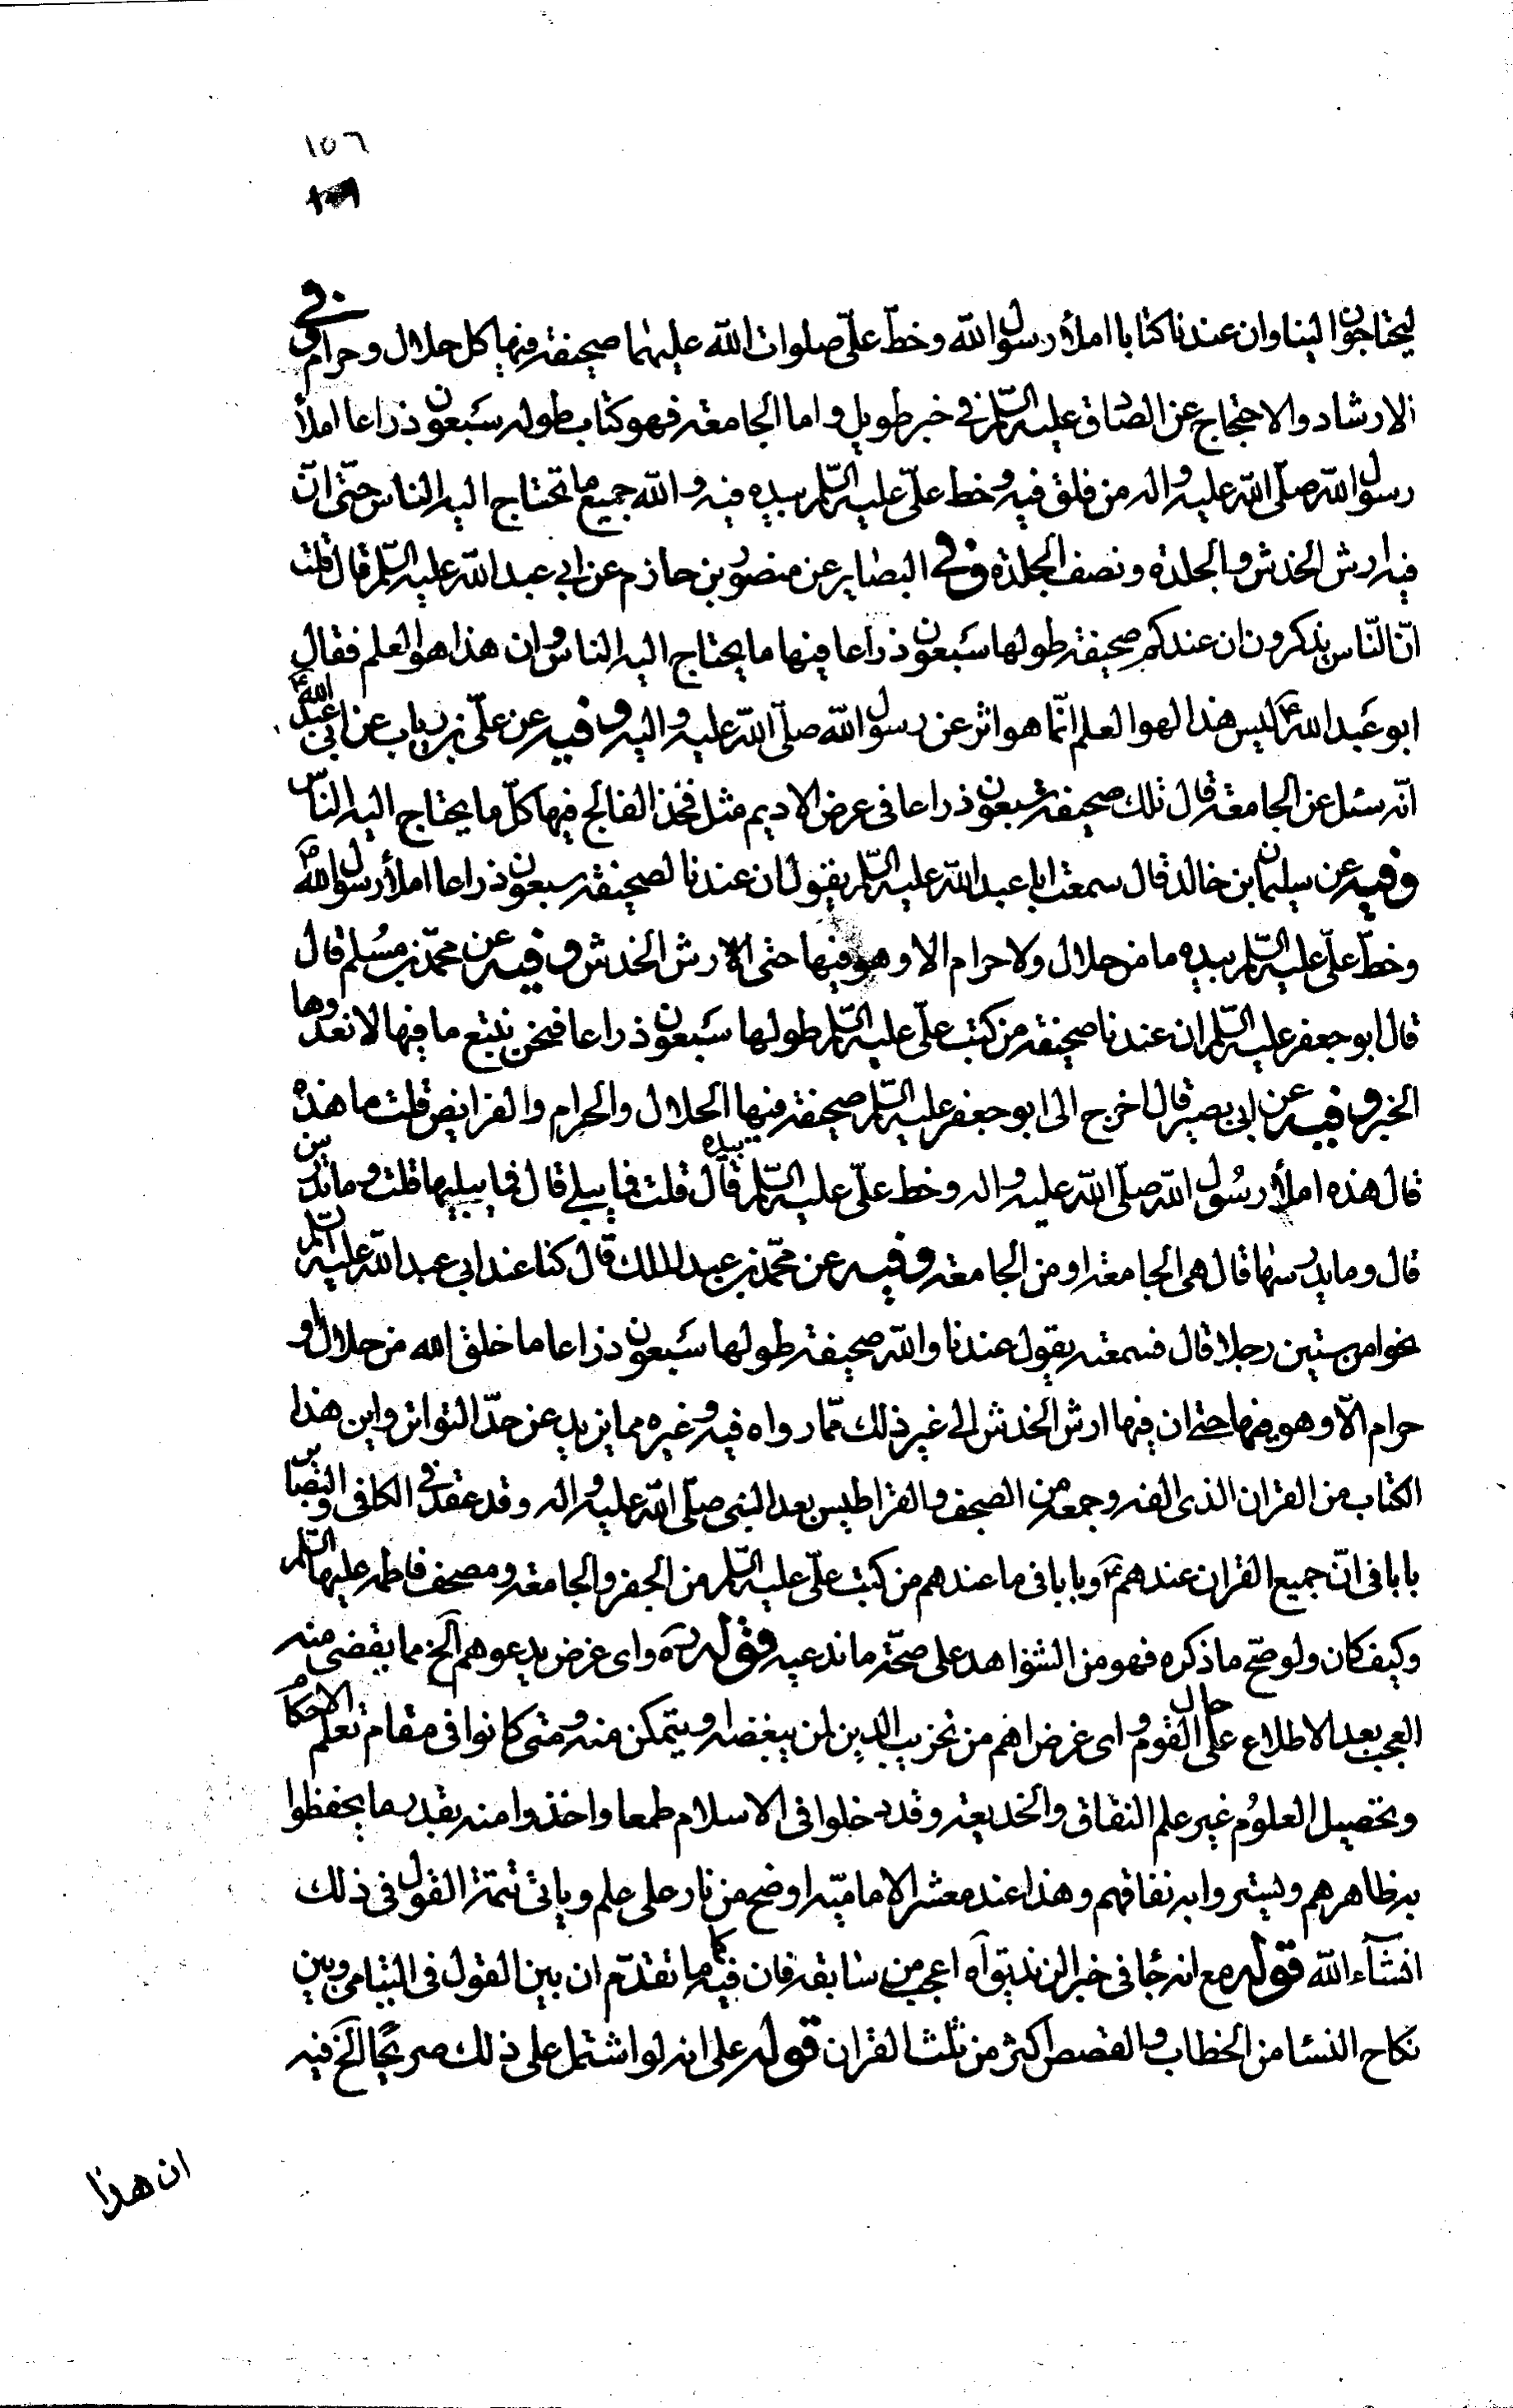 ١٥٦
ليحتاجون الينا وان عندنا كتابا املأ رسول الله وخطّ علىّ صلوات الله عليهما صحيفة فيها كل حلال وحرام وفى
الارشاد والاحتجاج عن الصادق عليه السّلم فى خبر طويل واما الجامعة فهو كتاب طوله سَبعون ذراعا املأ
رسول الله صلّى الله عليه واله من فلق فيه وخط علىّ عليه السّلم بيده فيه والله جميع ما تحتاج اليه الناس حتّى انّ
فيه ارش الخدش والجلدة ونصف الجلدة وفى البصاير عن منصور بن حازم عن ابى عبد الله عليه السّلم قال قلت
انّ النّاس يذكرون ان عندكم صحيفة طولها سَبعون ذراعا فيها ما يحتاج اليه الناس وان هذا هو العلم فقال
ابو عَبد الله ع ليس هذا لهو العلم انّما هو اثر عن رسول الله صلّى الله عليه واليه وفيه عن علىّ بن رياب عن ابى عبد الله ع
انّه سئل عن الجامعة قال تلك صحيفة سَبعون ذراعا فى عرض الاديم مثل فخذ الفالج فيها كلّ ما يحتاج اليه الناس
وفيه عن سليمان ابن خالد قال سمعت ابا عبد الله عليه السّلم يقول ان عندنا لصحيفة سبعون ذراعا املأ رسول الله ص
وخطّ علىّ عليه السّلم بيده ما من حلال ولا حرام الا وهو فيها حتى الارش الخدش وفيه عن محمّد بن مسُلم قال
قال ابو جعفر عليه السّلم ان عندنا صحيفة من كتب علىّ عليه السّلم طولها سَبعون ذراعا فنحن نتبع ما فيها لا نعدوها
الخبر وفيه عن ابى بصير قال اخرج الى ابو جعفر عليه السّلم صحيفة فيها الحلال والحرام والفرايض قلت ما هذه
قال هذه املأ رسُول الله صلّى الله عليه واله وخط علىّ عليه السّلم بيده قال قلت فما يبلى قال فما يبليها قلت وما تدرس
قال وما يدرسها قال هى الجامعة او من الجامعة وفيه عن محّمد بن عبد الملك قال كنا عند ابى عبد الله عليه السّلم
نحوا من ستين رجلا قال فسمعته يقول عندنا والله صحيفة طولها سَبعون ذراعا ما خلق الله من حلال او
حرام الّا وهو فيها حتى ان فيها ارش الخدش الى غير ذلك ممّا رواه فيه وغيره مما يزيد عن حدّ التواتر واين هذا
الكتاب من القران الذى الفه وجمعه من الصحف والقراطيس بعد النبى صلّى الله عليه واله وقد عقد فى الكافى والبصاير
بابا فى انّ جميع القران عندهم ع وبابا فى ما عندهم من كتب علىّ عليه السّلم من الجفر والجامعة ومصحف فاطمه عليها السّلم
وكيف كان ولو صحّ ما ذكره فهو من الشواهد على صحّة ما ندعيه قوله ره واى غرض يدعوهم الخ مما يقضى منه
العجب بعد الاطلاع على حال القوم واى غرض اهم من تخريب الدين لمن يبغضه ويتمكن منه ومتى كانوا فى مقام تعلم الاحكام
وتحصيل العلوُم غير علم النفاق والخديعة وقد دخلوا فى الاسلام طمعا واخذوا منه بقدر ما يحفظوا
به ظاهرهم ويستروا به نفاقهم وهذا عند معشر الاماميّه اوضح من نار على علم وياتى تتمة القول فى ذلك
انشآء الله قوله مع انه جا فى خبر الزنديق آه اعجب من سابقه فان فيه كما تقدّم ان بين القول فى اليتامى وبين
نكاح النسا من الخطاب والقصص اكثر من ثلث القران قوله على انه لو اشتمل على ذلك صريحًا الخ فيه
ان هذا